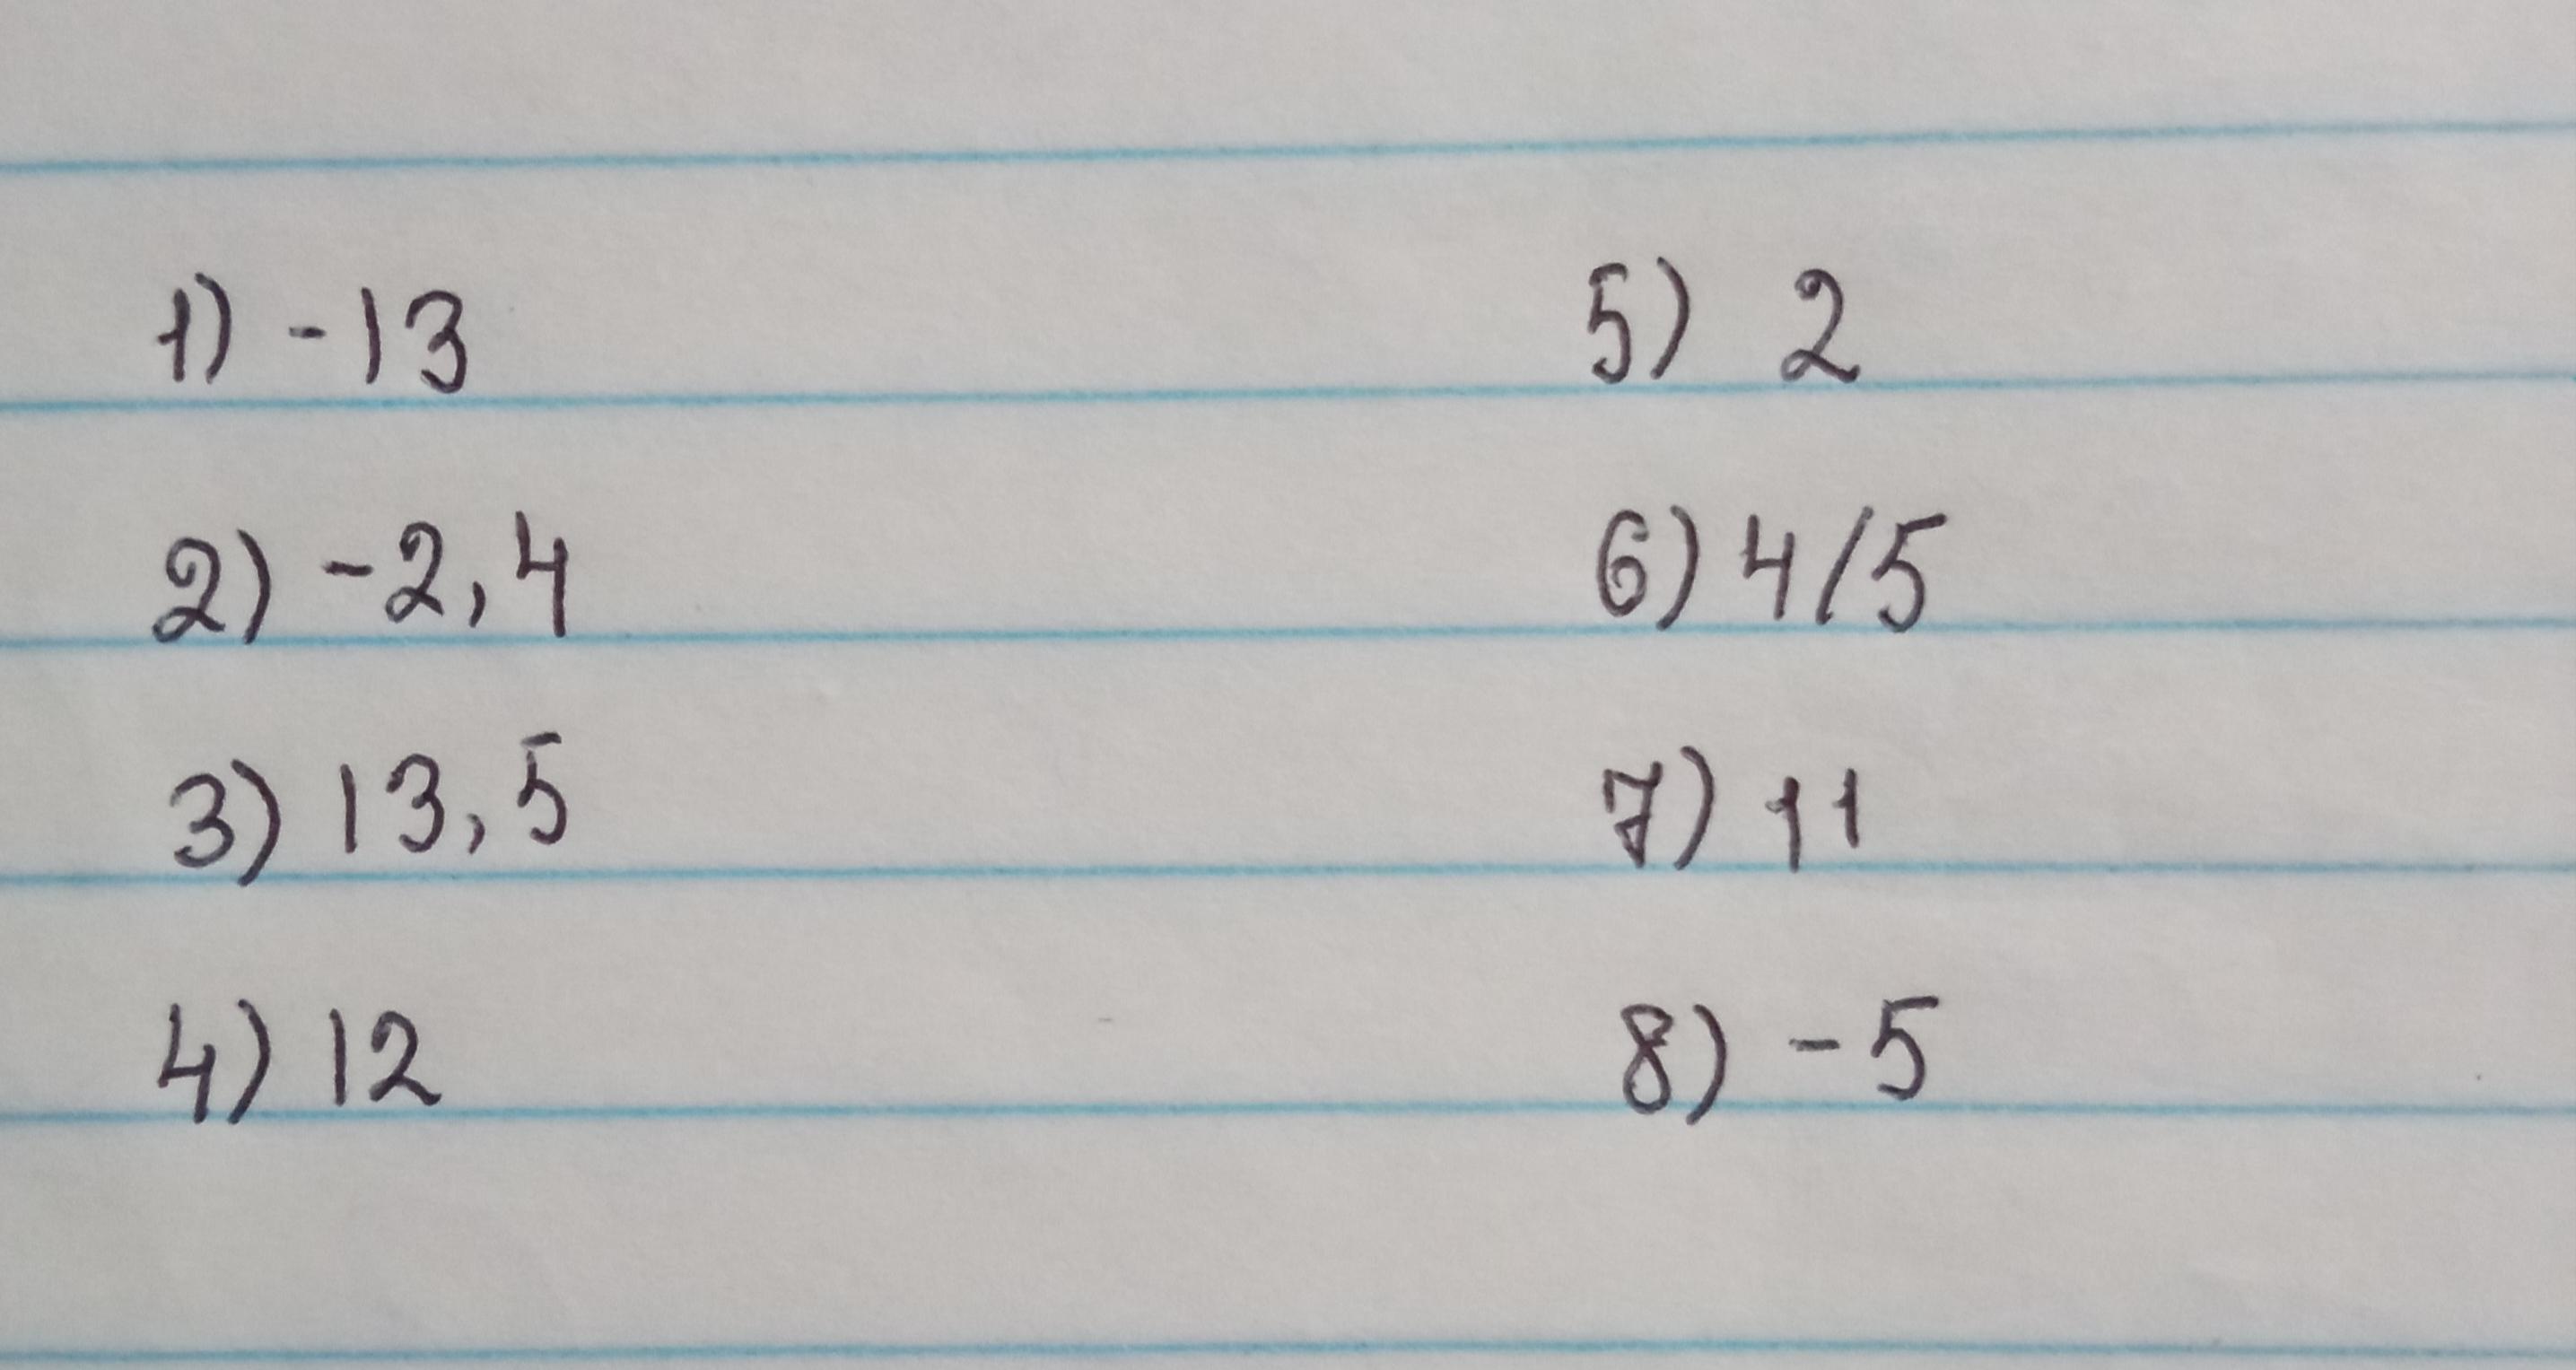 1) -13
2) -2,4
3) 13,5
4) 12
5) 2
6) 4/5
7) 11
8) -5